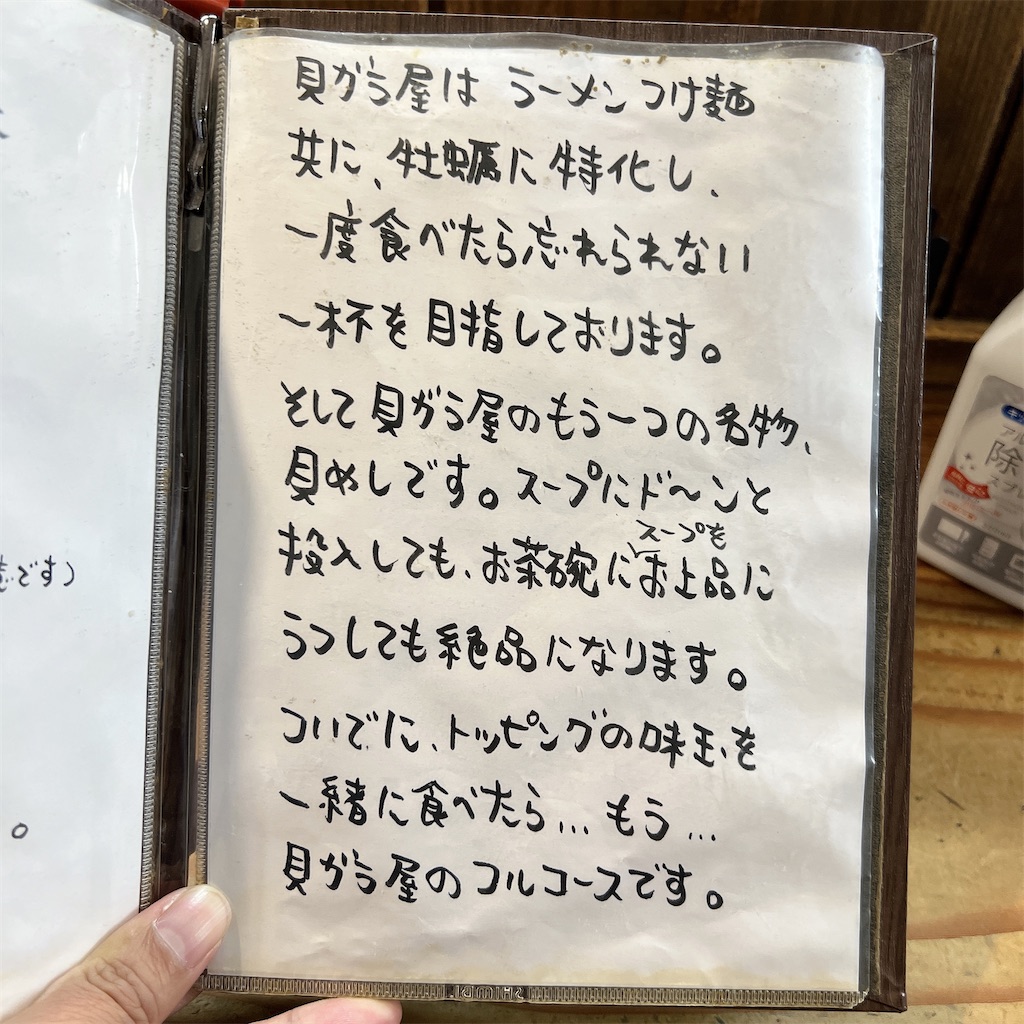 貝がら屋は ラーメンつけ麺
共に、牡蠣に特化し、
一度食べたら忘れられない
一杯を目指しております。
そして貝がら屋のもう一つの名物、
貝めしです。スープにド〜ンと
スープを
投入しても、お茶碗にお上品に
うつしても絶品になります。
ついでに、トッピングの味玉を
一緒に食べたら...もう...
貝がら屋のフルコースです。
です)
。
除